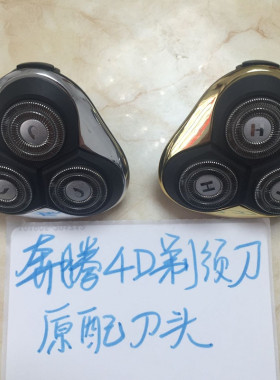 J
S
J
H
H
H
奔腾4D剃须刀
原配刀头